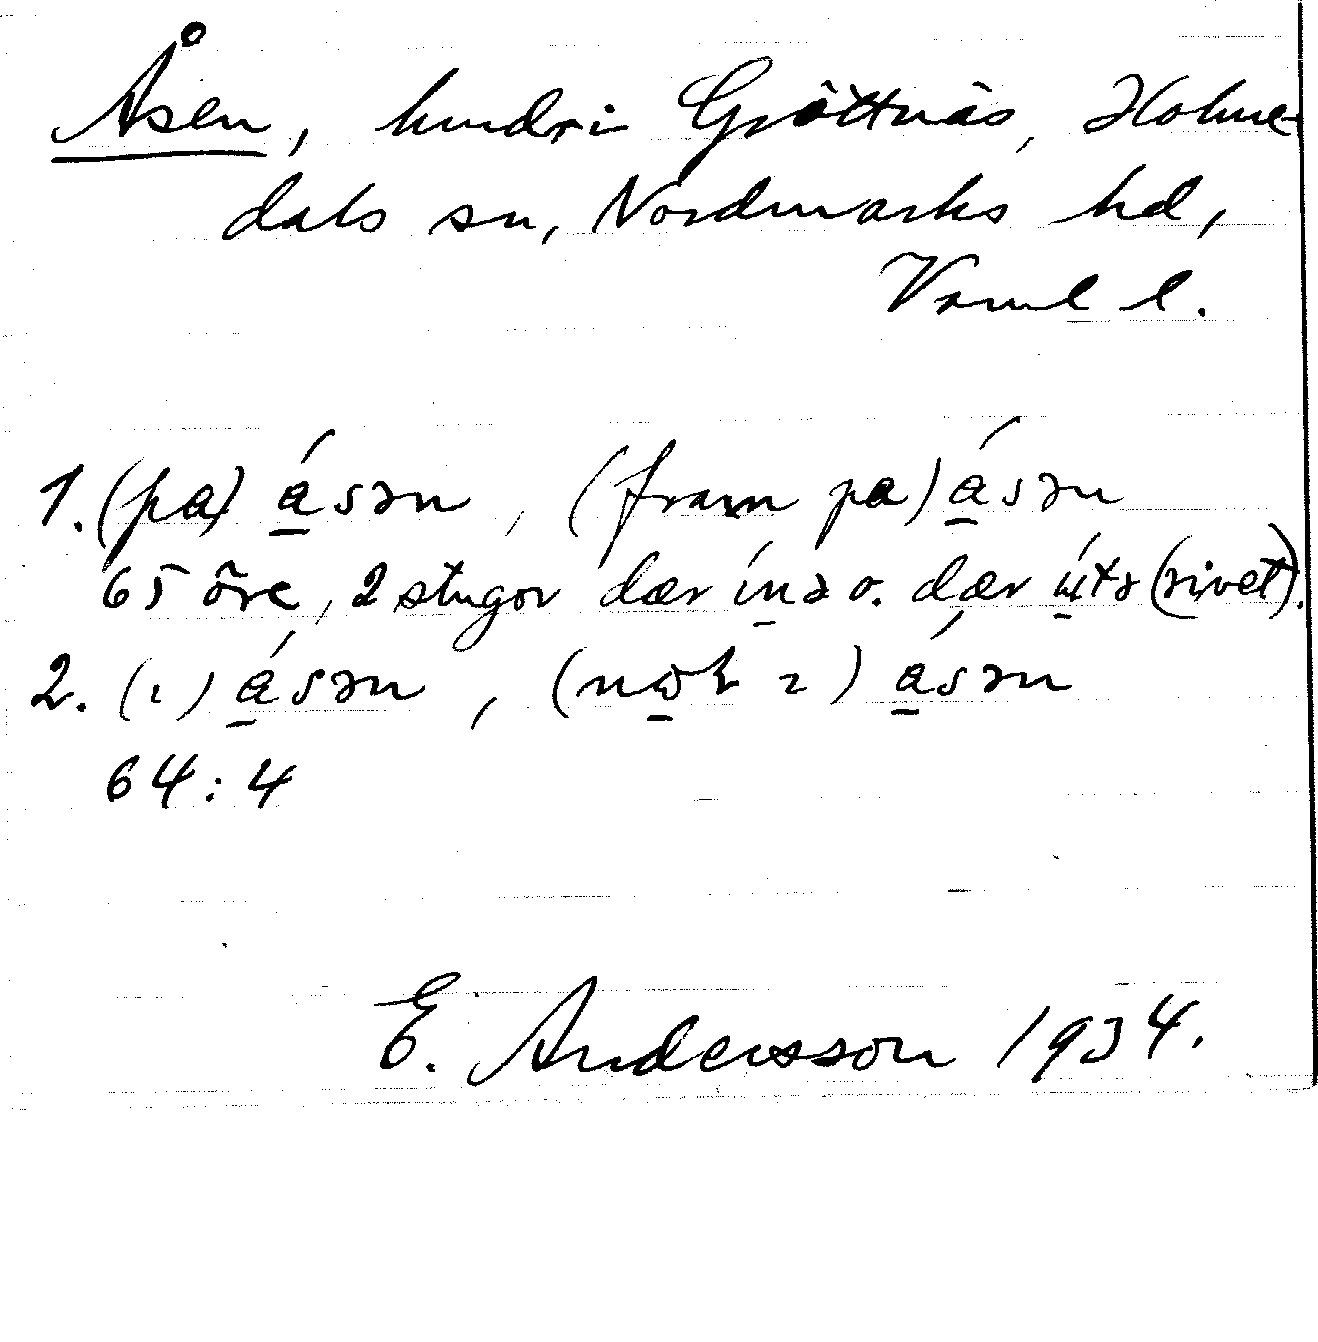 Åsen, hmdri Gröttnäs, Holme-
dals sn, Nordmarks hd,
Värml l.
1. (pa) ásən, (fram pa) ásən
65 öre, 2 stugor dær ínə o. dær útə (rivet).
2. (ı) ásən, (ı) ásən
64:4
E. Andersson 1934.